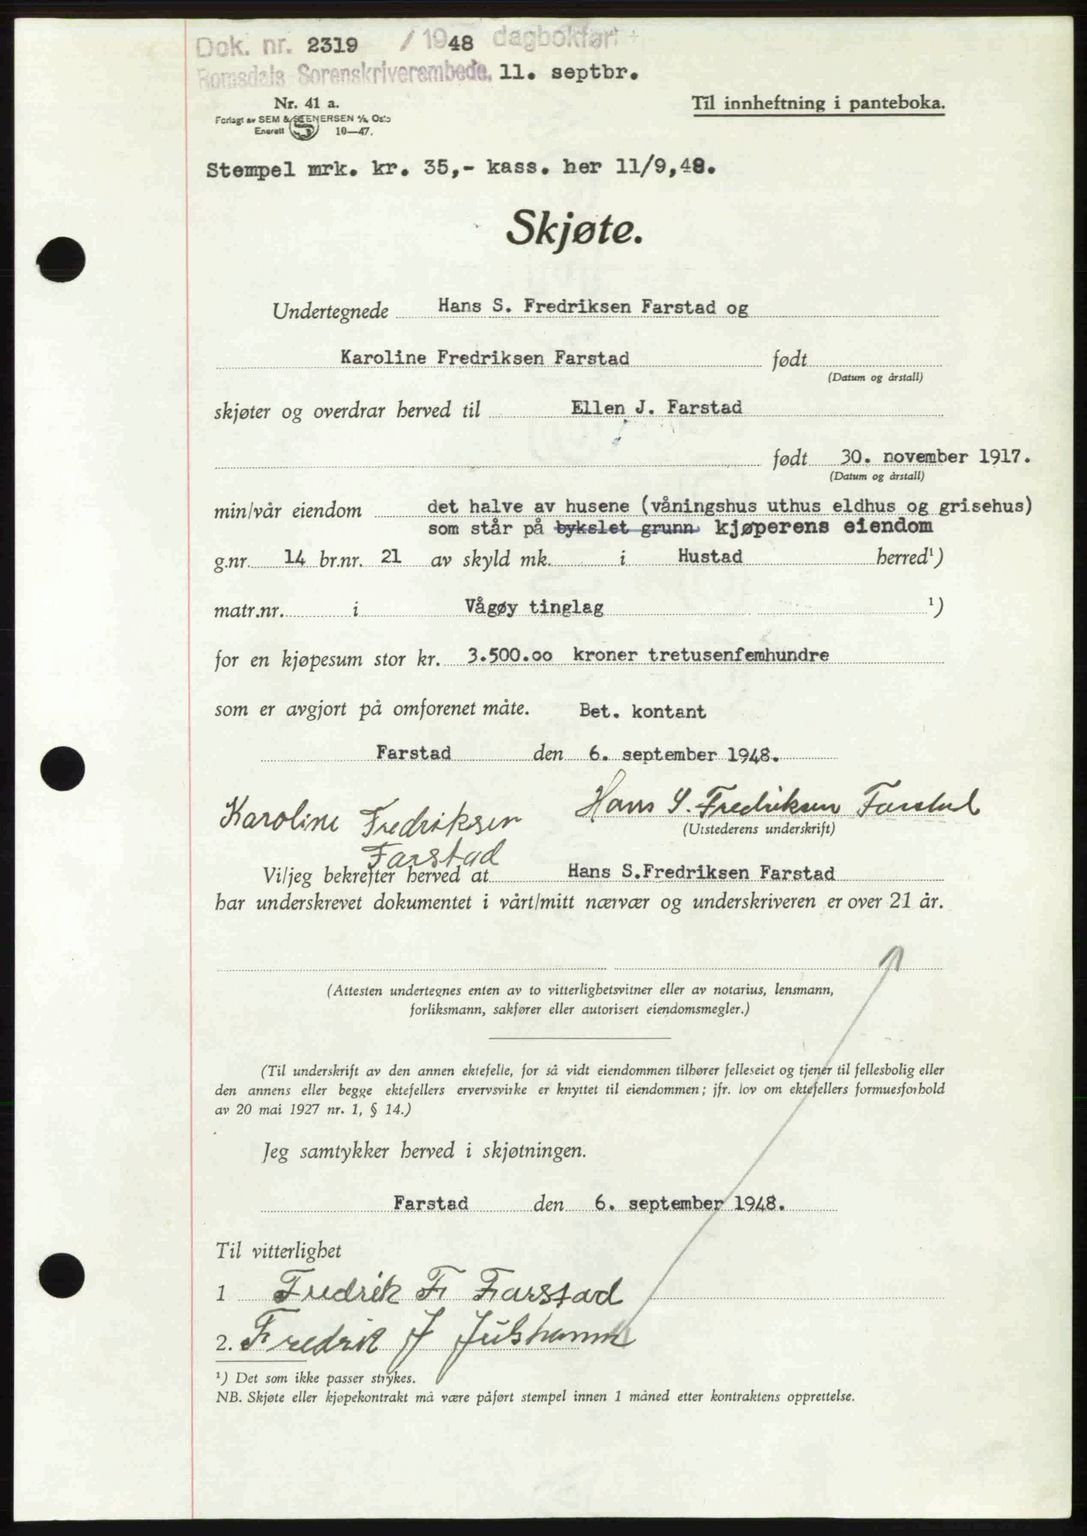 Dok. nr. 2319 / 1948 dagbokført
Romsdals Sorenskriverembede, 11. septbr.
Nr. 41 a.
Forlagt av SEM & STENERSEN A/S, Oslo
Enerett S 10—47.
Til innheftning i panteboka.
Stempel mrk. kr. 35,- kass. her 11/9,48.
Skjøte.
Undertegnede Hans S. Fredriksen Farstad og
Karoline Fredriksen Farstad født
(Datum og årstall)
skjøter og overdrar herved til Ellen J. Farstad
født 30. november 1917.
(Datum og årstall)
min/vår eiendom det halve av husene (våningshus uthus eldhus og grisehus)
som står på bykslet grunn kjøperens eiendom
g.nr. 14 br.nr. 21 av skyld mk. i Hustad herred¹)
matr.nr. i Vågøy tinglag ¹)
for en kjøpesum stor kr. 3.500.oo kroner tretusenfemhundre
som er avgjort på omforenet måte. Bet. kontant
Farstad den 6. september 1948.
Karoline Fredriksen Hans S. Fredriksen Farstad
Farstad (Utstederens underskrift)
Vi/jeg bekrefter herved at Hans S.Fredriksen Farstad
har underskrevet dokumentet i vårt/mitt nærvær og underskriveren er over 21 år.
(Attesten undertegnes enten av to vitterlighetsvitner eller av notarius, lensmann,
forliksmann, sakfører eller autorisert eiendomsmegler.)
(Til underskrift av den annen ektefelle, for så vidt eiendommen tilhører felleseiet og tjener til fellesbolig eller
den annens eller begge ektefellers ervervsvirke er knyttet til eiendommen; jfr. lov om ektefellers formuesforhold
av 20 mai 1927 nr. 1, § 14.)
Jeg samtykker herved i skjøtningen.
Farstad den 6. september 1948.
Til vitterlighet
1 Fredrik F Farstad
2. Fredrik J Julshamn
¹) Det som ikke passer strykes.
NB. Skjøte eller kjøpekontrakt må være påført stempel innen 1 måned etter kontraktens opprettelse.